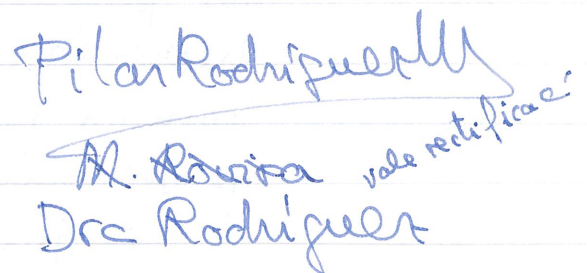 Pilar Rodríguez M
M. Rovira vale rectificac
Dra Rodríguez